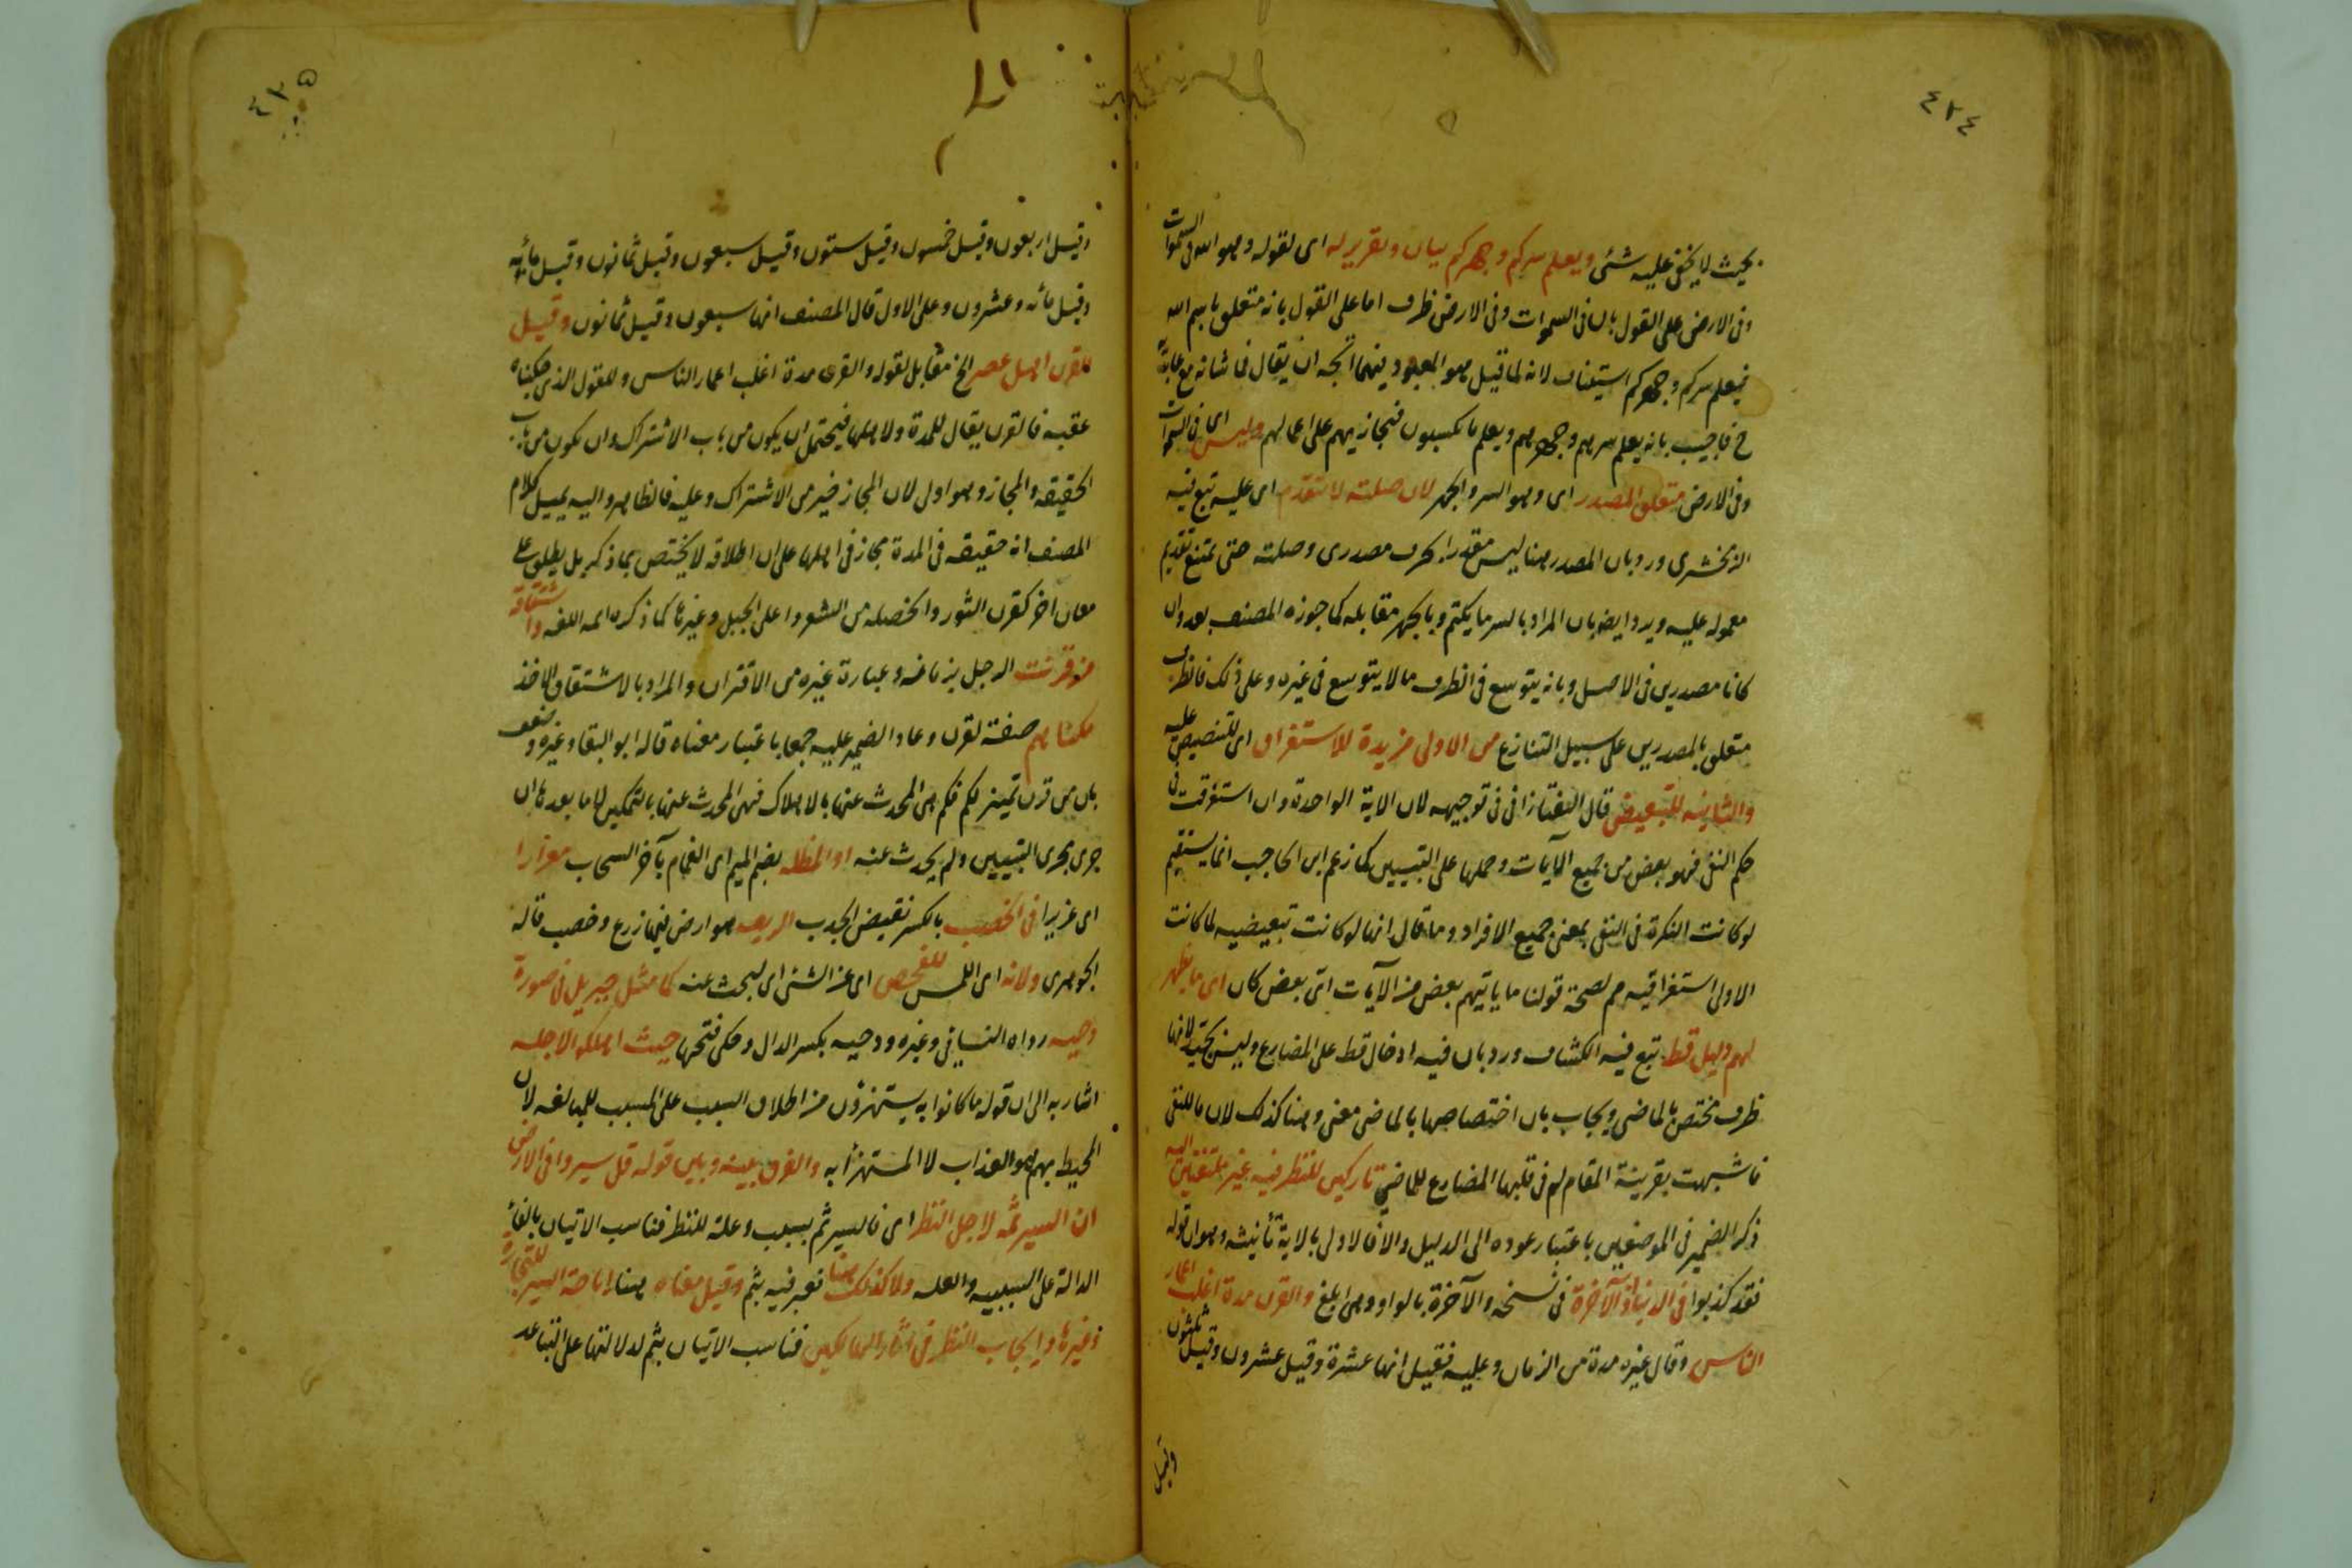 ٤٢٤
بحيث لا يخفى عليه شئ ويعلم سركم وجهركم بيان وتقرير له اى لقوله وهو الله فى السموات
وفى الارض على القول بان فى السموات وفى الارض ظرف اما على القول بانه متعلق باسم الله
فيعلم سركم وجهركم استيناف لانه لما قيل هو المعبود فيهما اتجه ان يقال فما شانه مع عابديه
ح فاجيب بانه يعلم سرهم وجهرهم ويعلم ما يكسبون فيجازيهم على اعمالهم وليس اى فى السموات
وفى الارض متعلق المصدر اى وهو السر والجهر لان صلته لا تتقدم اى عليه تبع فيه
الزمخشرى ورد بان المصدر هنا ليس مقدرا بحرف مصدرى وصلته حتى يمتنع تقديم
معموله عليه ويرد ايضا بان المراد بالسر ما يكتم وبالجهر مقابله كما جوزه المصنف بعد وان
كانا مصدرين فى الاصل وبانه يتوسع فى الظرف ما لا يتوسع فى غيره وعلى ذلك فالظرف
متعلق بالمصدرين على سبيل التنازع من الاولى مزيدة للاستغراق اى للتنصيص عليه
والثانيه للتبعيض قال التفتازانى فى توجيهه لان الاية الواحدة وان استغرقت فى
حكم النفى فهو بعض من جميع الآيات وحملها على التبيين كما زعم ابن الحاجب انما يستقيم
لو كانت النكرة فى النفى بمعنى جميع الافراد وما قال انها لو كانت تبعيضيه لما كانت
الاولى استغراقيه مم لصحة قولنا ما ياتيهم بعض من الآيات اىّ بعض كان اى ما يظهر
لهم دليل قط تبع فيه الكشاف ورد بان فيه ادخال قط على المضارع وليس بجيد لانها
ظرف مختص بالماضى ويجاب بان اختصاصها بالماضى معنى وهنا كذلك لان ما للنفى
فاشبهت بقرينة المقام لم فى قلبها المضارع للماضى تاركين للنظر فيه غير ملتفتين اليه
ذكر الضمير فى الموضعين باعتبار عوده الى الدليل والا فالاولى بالاية تأنيثه وهو ان قوله
فقد كذبوا فى الدنيا او الآخرة فى نسخه والآخرة بالواو وهى ابلغ والقرن مدة اغلب اعمار
الناس وقال غيره مدة من الزمان وعليه فقيل انها عشرة وقيل عشرون وقيل ثلثون
وقيل
٤٢٥
وقيل اربعون وقيل خمسون وقيل ستون وقيل سبعون وقيل ثمانون وقيل مائه
وقيل مائه وعشرون وعلى الاول قال المصنف انها سبعون وقيل ثمانون وقيل
القرن اهل عصر الخ مقابل لقوله والقرن مدة اغلب اعمار الناس وللقول الذى حكيناه
عقبه فالقرن يقال للمدة ولاهلها فيحتمل ان يكون من باب الاشتراك وان يكون من باب
الحقيقه والمجاز وهو اولى لان المجاز خير من الاشتراك وعليه فالظاهر واليه يميل كلام
المصنف انه حقيقه فى المدة مجاز فى اهلها على ان اطلاقه لا يختص بما ذكر بل يطلق على
معان اخر كقرن الثور والخصله من الشعر واعلى الجبل وغيرها كما ذكره ائمه اللغه واشتقاقه
من قرنت الرجل بزمانه وعبارة غيره من الاقتران والمراد بالاشتقاق الاخذ
مكناهم صفة لقرن وعاد الضمير عليه جمعا باعتبار معناه قاله ابو البقاء وغيره وضعف
بان من قرن تمييز لكم فكم هى المحدث عنها بالاهلاك فهى المحدث عنها بالتمكين لا ما بعدها ان
جرى مجرى التبيين ولم يحدث عنه او المظله بضم الميم اى الغمام بآخر السحاب مغزارا
اى غزيرا فى الخصب بالكسر نقيض الجدب الريف هو ارض فيها زرع وخصب قاله
الجوهرى ولانه اى اللمس للفحص اى عن الشئ اى لبحث عنه كما مثل جبريل فى صورة
دحيه رواه النسائى وغيره ودحيه بكسر الدال وحكى فتحها حيث اهلكوا لاجله
اشار به الى ان قوله ما كانوا به يستهزؤن من اطلاق السبب على المسبب للمبالغه لان
المحيط بهم هو العذاب لا المستهزأ به والفرق بينه وبين قوله قل سيروا فى الارض
ان السير ثمّه لاجل النظر اى فالسير ثم سبب وعلة للنظر فناسب الاتيان بالفاء
الدالة على السببيه والعله ولا كذلك هنا فعبر فيه بثم وقيل معناه هنا اباحة السير للتجارة
وغيرها وايجاب النظر فى آثار الهالكين فناسب الاتيان بثم لدلالتها على التباعد